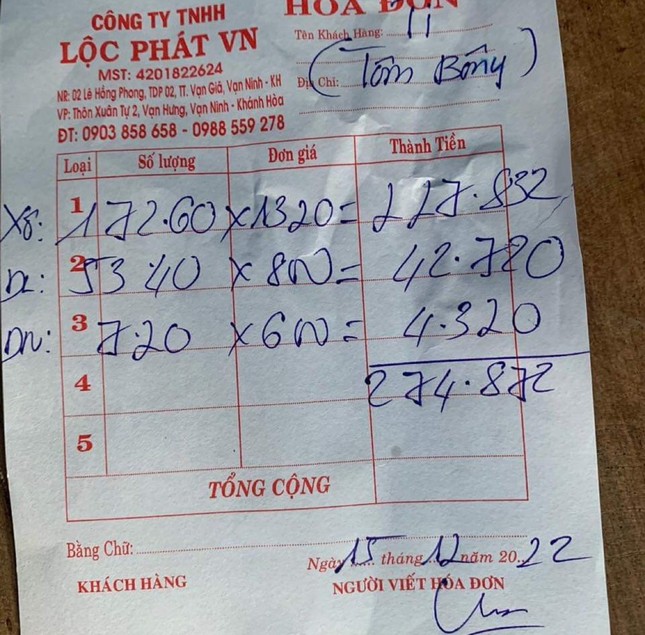 CÔNG TY TNHH
LỘC PHÁT VN
MST: 4201822624
NR: 02 Lê Hồng Phong, TDP 02, TT. Vạn Giã, Vạn Ninh - KH
VP: Thôn Xuân Tự 2, Vạn Hưng, Vạn Ninh - Khánh Hòa
ĐT: 0903 858 658 - 0988 559 278
HÓA ĐƠN
Tên Khách Hàng:
Địa Chỉ: (Tôm Bông)
Loại Số lượng Đơn giá Thành Tiền
Xô: 1 172.60 x 1320 = 227.832
DL: 2 53.40 x 800 = 42.720
DN: 3 7.20 x 600 = 4.320
4 274.872
5
TỔNG CỘNG
Bằng Chữ:
Ngày 15 tháng 12 năm 2022
KHÁCH HÀNG NGƯỜI VIẾT HÓA ĐƠN